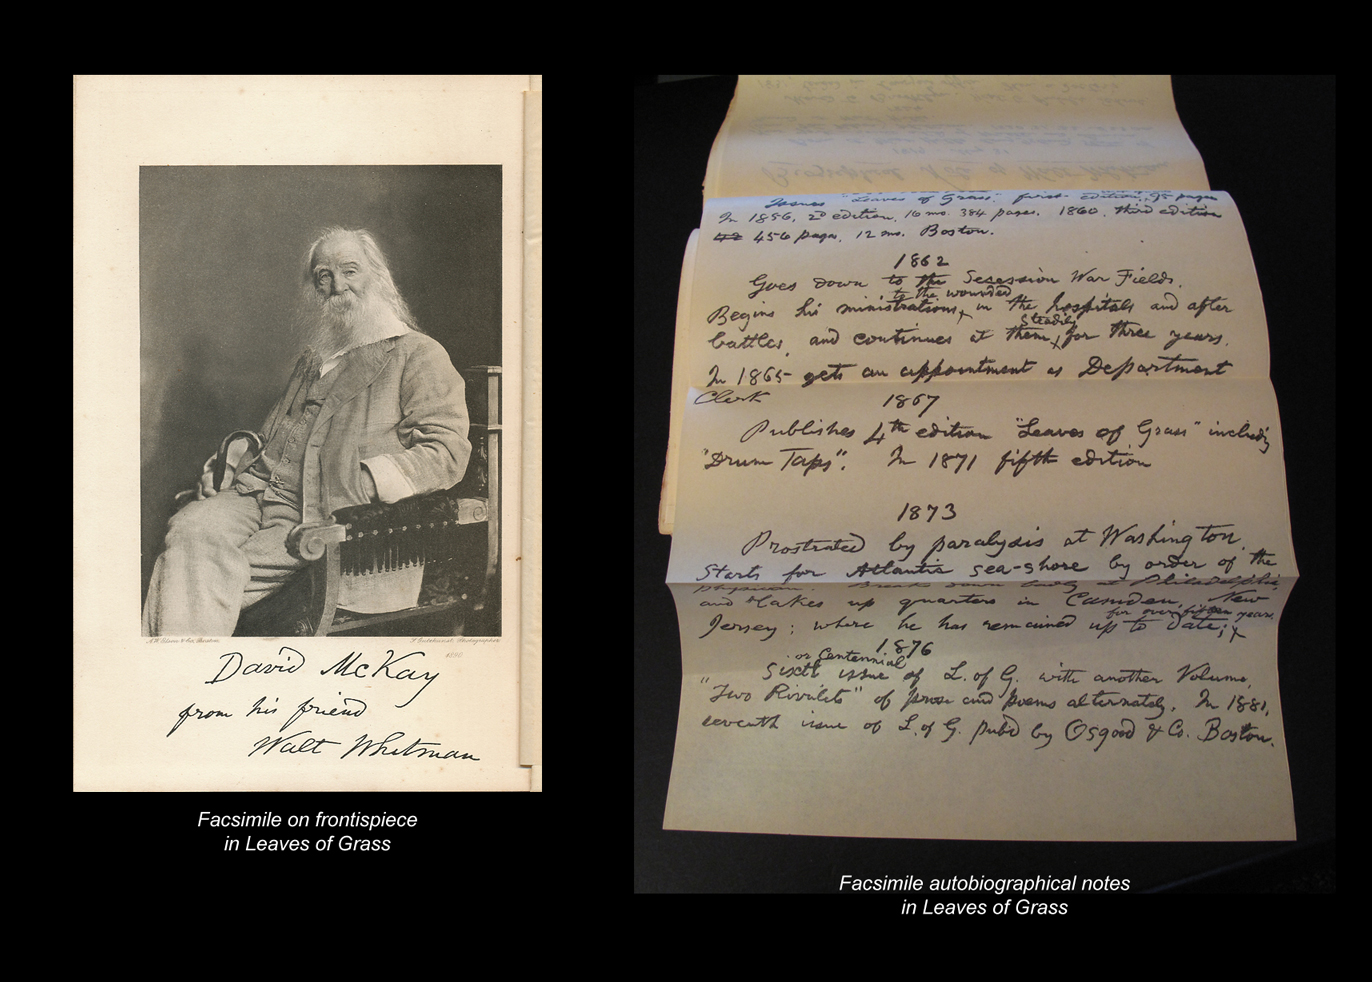 David McKay
from his friend
Walt Whitman
Facsimile on frontispiece
in Leaves of Grass
Issues "Leaves of Grass," first edition, 95 pages
In 1856, 2d edition, 16 mo. 384 pages. 1860. third edition
456 pages, 12 mo. Boston.
1862
Goes down to the Secession War Fields.
to the wounded
Begins his ministrations, in the hospitals and after
steadily
battles, and continues at them, for three years.
In 1865 gets an appointment as Department
Clerk
1867
Publishes 4th edition "Leaves of Grass" including
"Drum Taps". In 1871 fifth edition
1873
Prostrated by paralysis at Washington.
Starts for Atlantic sea-shore by order of the
physician. Breaks down badly at Philadelphia
and takes up quarters in Camden, New
for over fifteen years.
Jersey; where he has remained up to date;
1876
or Centennial
Sixth issue of L. of G. with another Volume,
"Two Rivulets" of prose and poems alternately. In 1881,
seventh issue of L. of G. pub'd by Osgood & Co. Boston.
Facsimile autobiographical notes
in Leaves of Grass